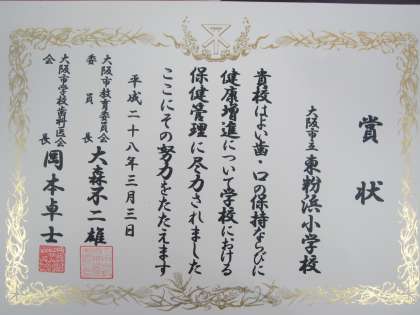 賞状
大阪市立 東粉浜小学校
貴校はよい歯・口の保持ならびに
健康増進について学校における
保健管理に尽力されました
ここにその努力をたたえます
平成二十八年三月三日
大阪市教育委員会
委員長 大森不二雄
大阪市学校歯科医会
会長 岡本卓士